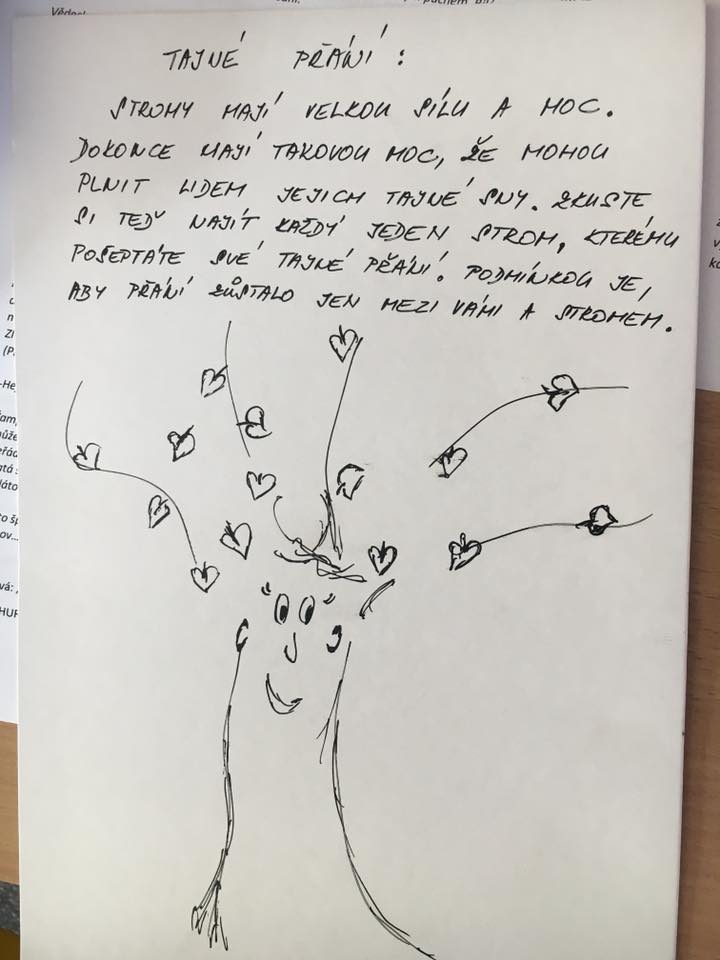 TAJNÉ PŘÁNÍ:
STROMY MAJÍ VELKOU SÍLU A MOC.
DOKONCE MAJÍ TAKOVOU MOC, ŽE MOHOU
PLNIT LIDEM JEJICH TAJNÉ SNY. ZKUSTE
SI TEĎ NAJÍT KAŽDÝ JEDEN STROM, KTERÉMU
POŠEPTÁTE SVÉ TAJNÉ PŘÁNÍ. PODMÍNKOU JE,
ABY PŘÁNÍ ZŮSTALO JEN MEZI VÁMI A STROMEM.